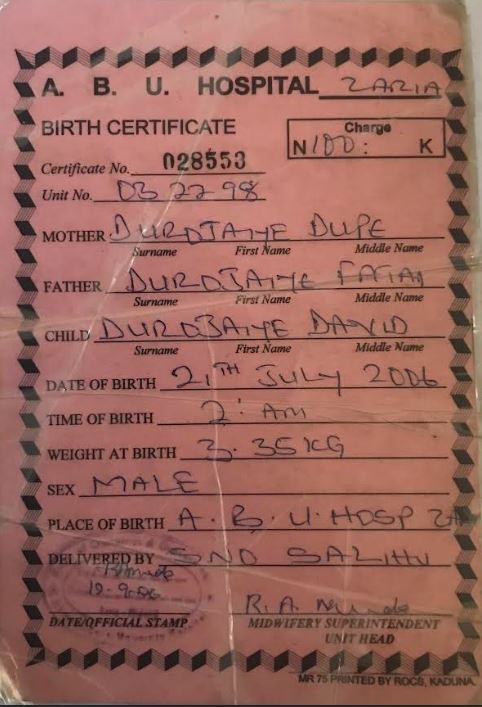 A. B. U. HOSPITAL ZARIA
BIRTH CERTIFICATE
Charge
N 100 : K
Certificate No. 028553
Unit No. 03 22 98
MOTHER DUROJAIYE DUPE
Surname First Name Middle Name
FATHER DUROJAIYE
Surname First Name Middle Name
CHILD DUROJAIYE DAVID
Surname First Name Middle Name
DATE OF BIRTH 21TH JULY 2006
TIME OF BIRTH 2: AM
WEIGHT AT BIRTH 3.35KG
SEX MALE
PLACE OF BIRTH A.B.U. HOSP ZA
DELIVERED BY SNO SALIHU
R. A.
DATE/OFFICIAL STAMP MIDWIFERY SUPERINTENDENT
UNIT HEAD
MR 75 PRINTED BY ROCS, KADUNA.